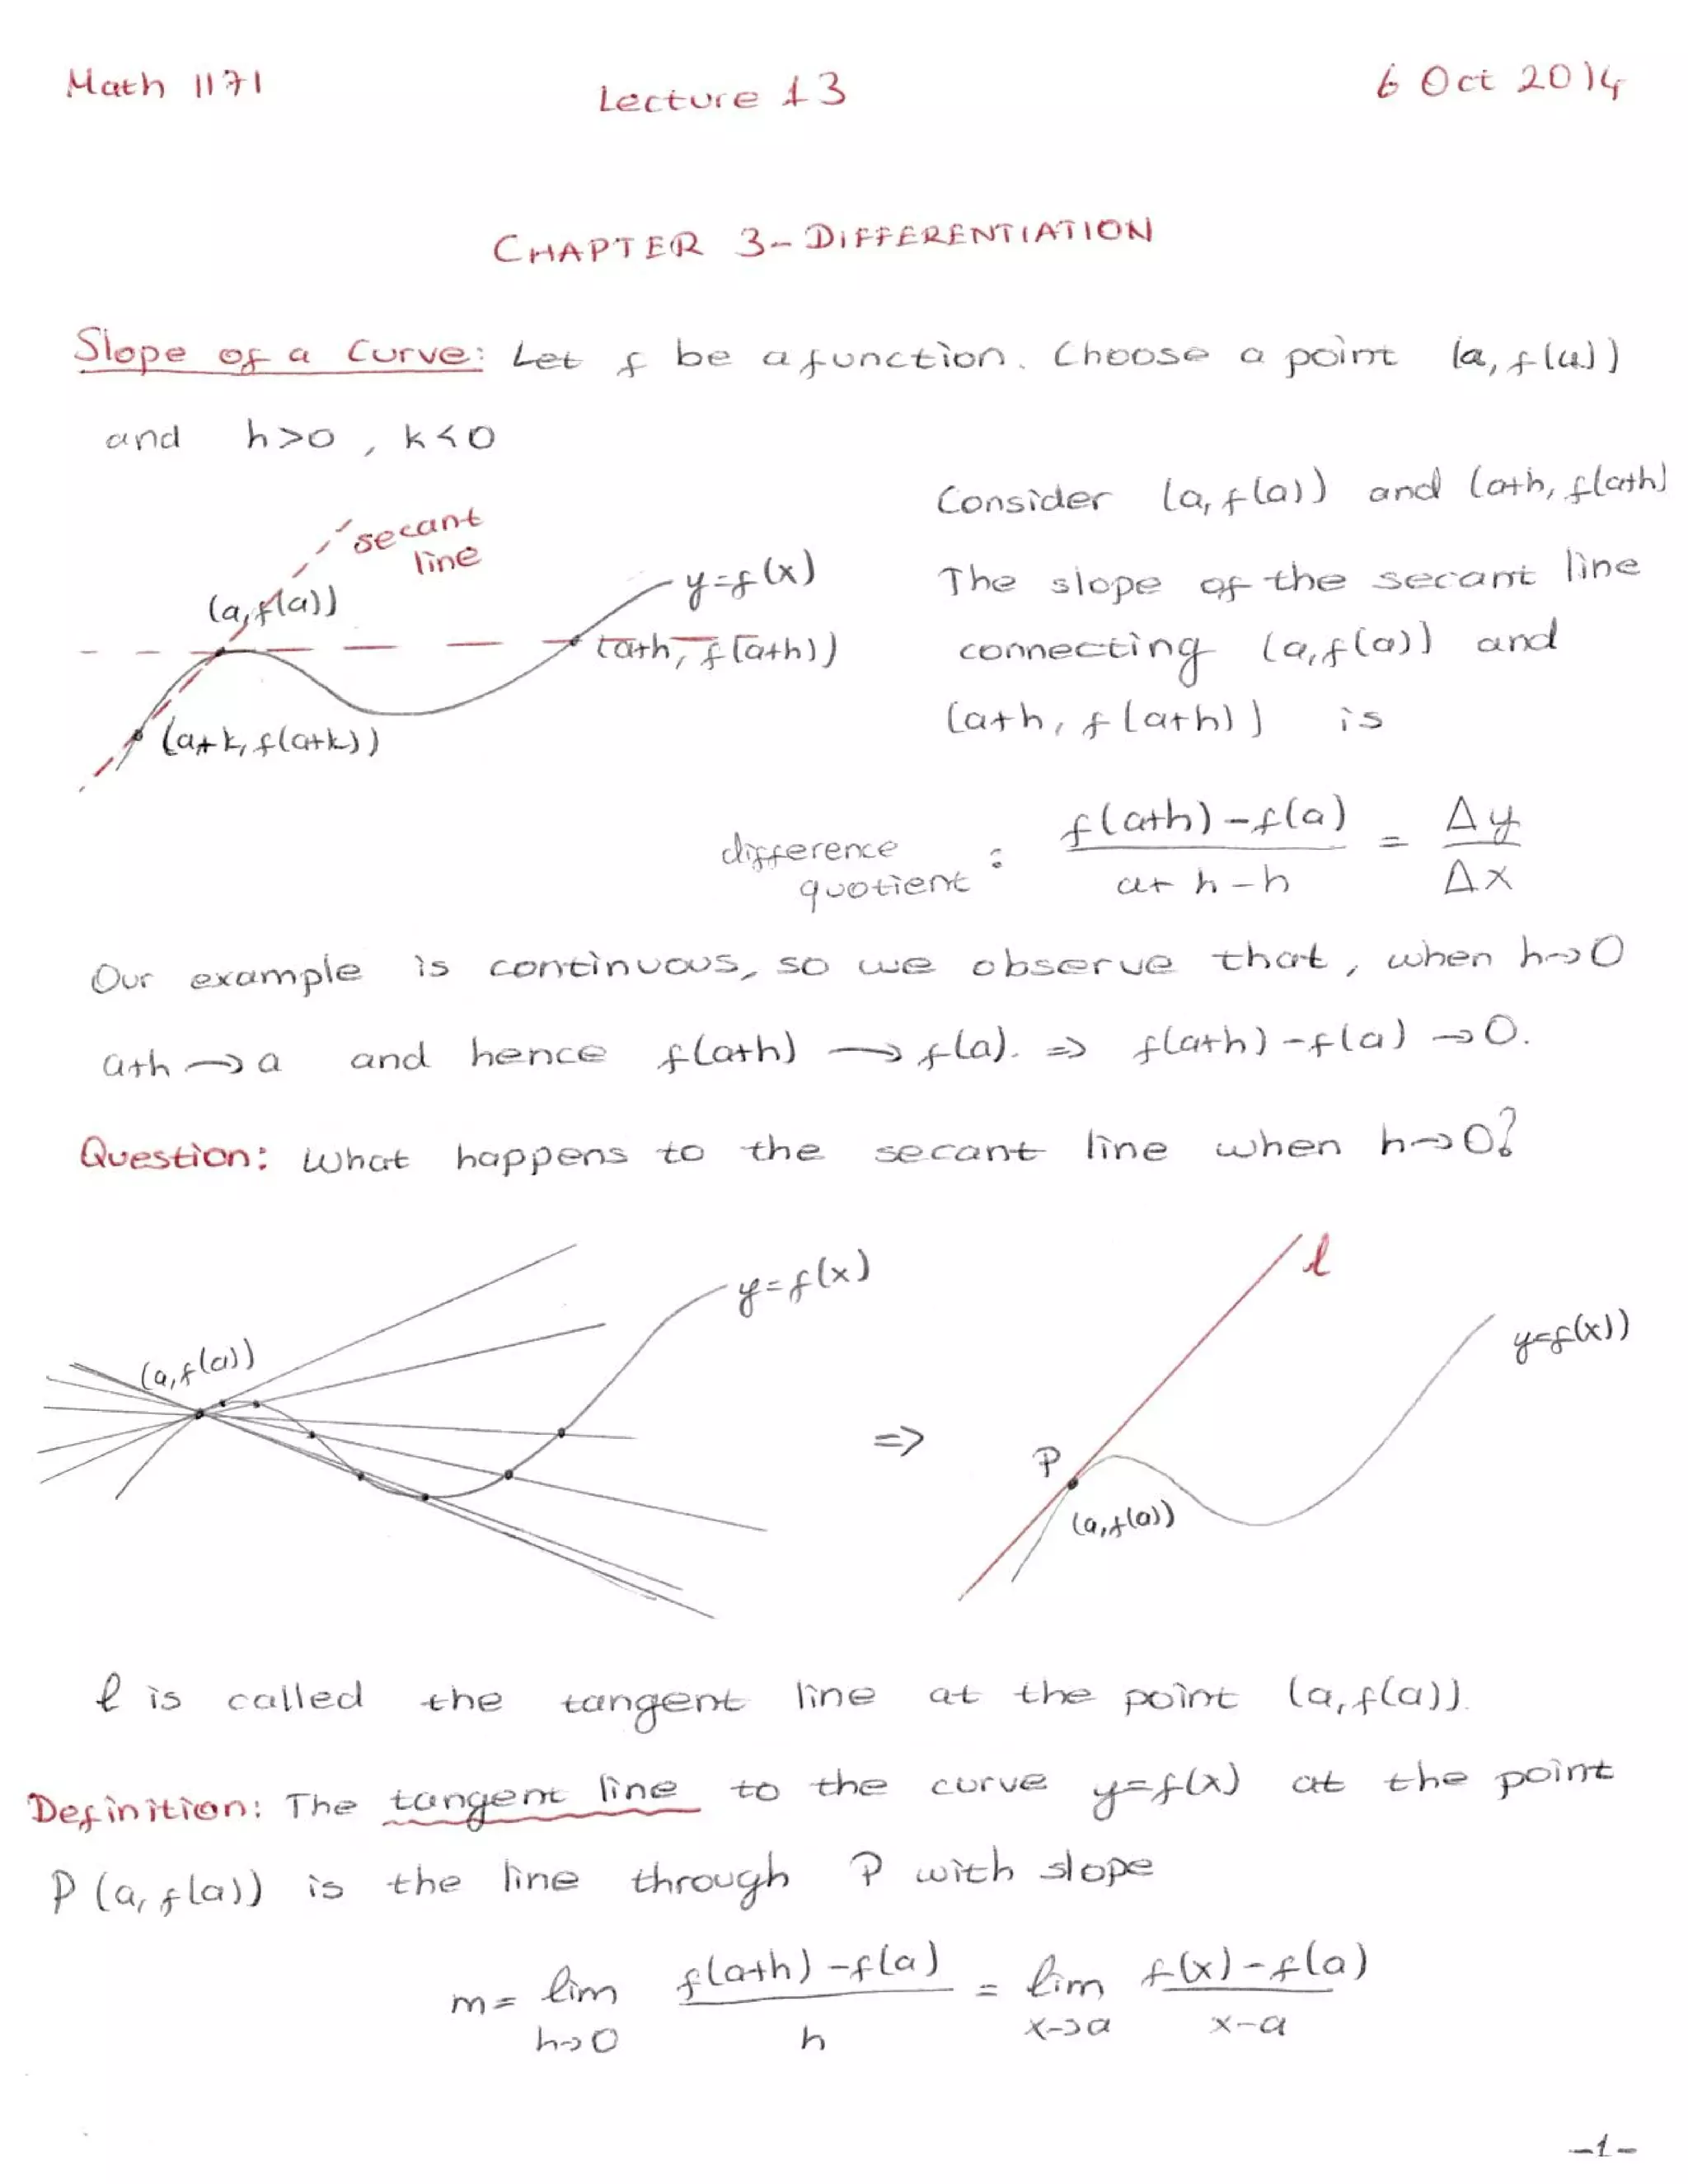 Math 1171
Lecture 13
6 Oct 2014
CHAPTER 3- DIFFERENTIATION
Slope of a Curve: Let f be a function. Choose a point (a, f(a))
and h>0, k<0
secant
line
(a, f(a))
y=f(x)
(a+h, f(a+h))
(a+k, f(a+k))
Consider (a, f(a)) and (a+h, f(a+h)
The slope of the secant line
connecting (a, f(a)) and
(a+h, f(a+h)) is
difference
quotient : f(a+h)-f(a) / a+h-h = Δy / Δx
Our example is continuous, so we observe that, when h→0
a+h → a and hence f(a+h) → f(a). ⇒ f(a+h)-f(a) → 0.
Question: What happens to the secant line when h→0?
(a, f(a))
y=f(x)
⇒
l
y=f(x))
P
(a, f(a))
l is called the tangent line at the point (a, f(a)).
Definition: The tangent line to the curve y=f(x) at the point
P (a, f(a)) is the line through P with slope
m = lim h→0 f(a+h)-f(a) / h = lim x→a f(x)-f(a) / x-a
-1-